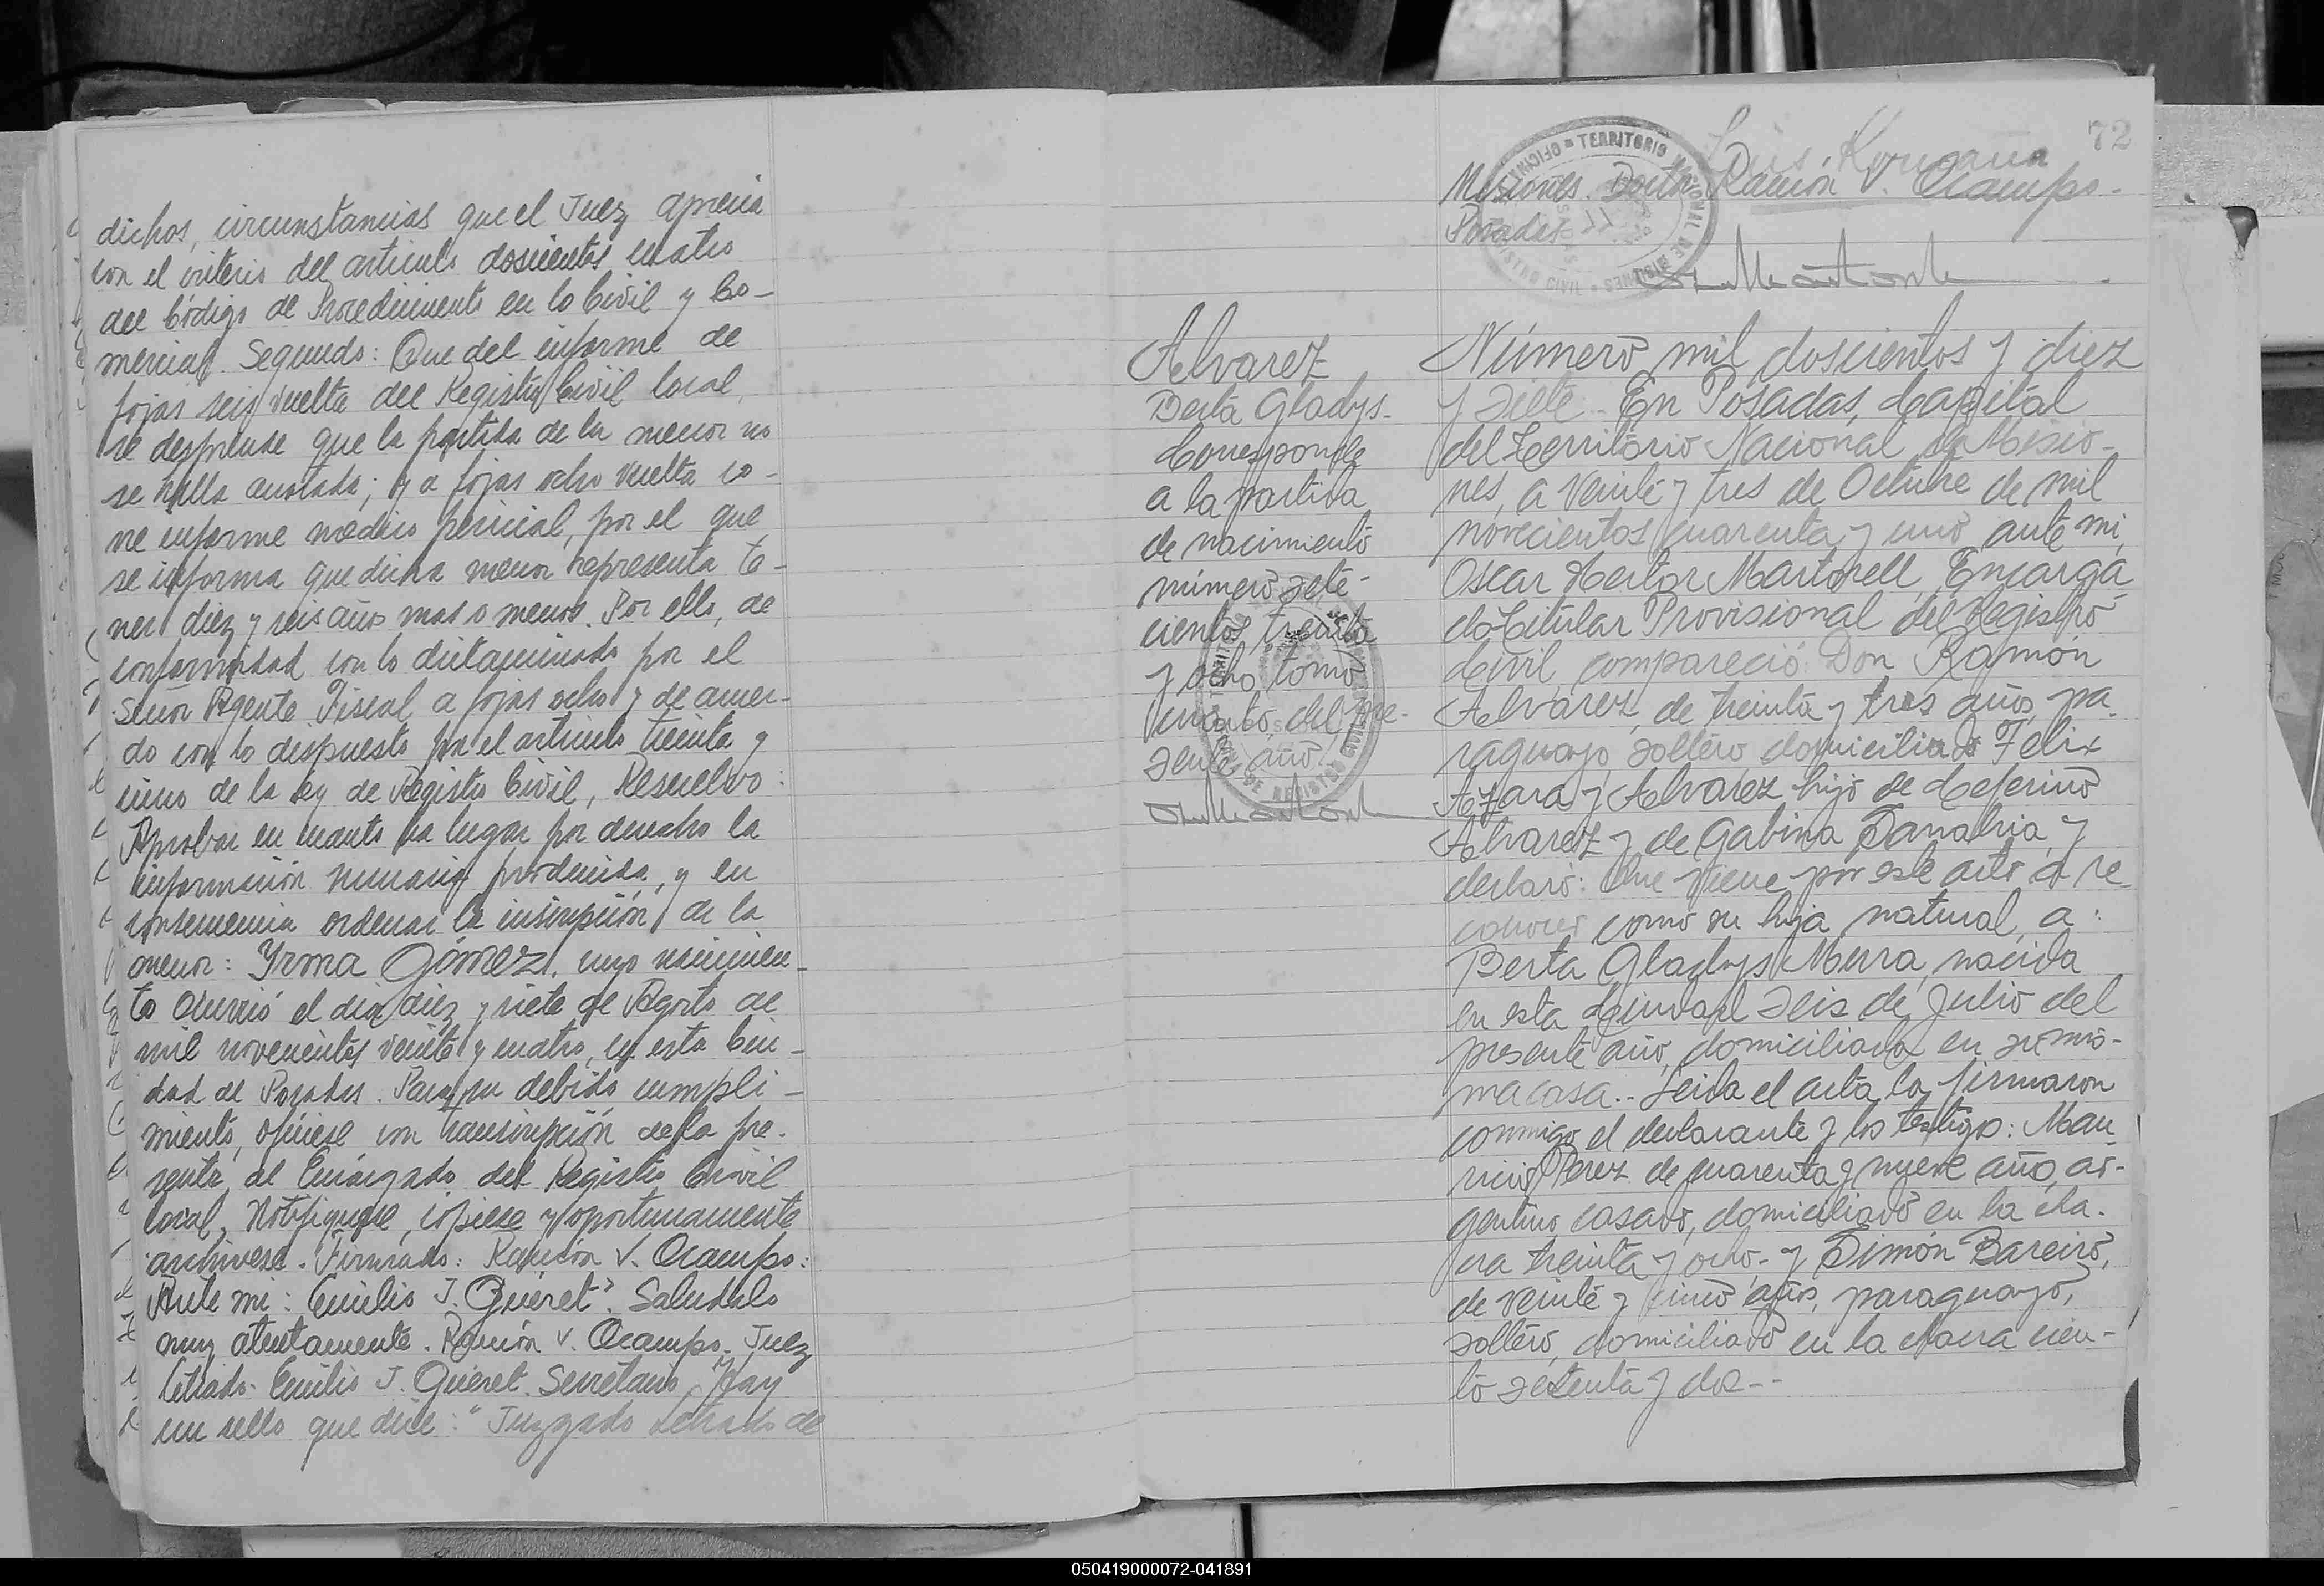 dichos, circunstancias que el Juez aprecia
con el criterio del articulo doscientos cuatro
del Código de Procedimiento en lo Civil y Co-
mercial. Segundo: Que del informe de
fojas seis vuelta del Registro Civil local,
se desprende que la partida de la menor no
se halla anotada; y a fojas ocho vuelta co-
rre informe medico pericial, por el que
se informa que dicha menor representa te-
ner diez y seis años mas o menos. Por ello, de
conformidad con lo dictaminado por el
Señor Agente Fiscal a fojas ocho y de acuer-
do con lo dispuesto por el articulo treinta y
cinco de la ley de Registro Civil, Resuelvo:
Aprobar en cuanto ha lugar por derecho la
información sumaria producida, y en
consecuencia ordenar la inscripción de la
menor: Yrma Gómez, cuyo nacimien-
to ocurrió el dia diez y siete de Agosto de
mil novecientos veinte y cuatro, en esta Ciu-
dad de Posadas. Para su debido cumpli-
miento, ofíciese con transcripción de la pre-
sente al Encargado del Registro Civil
local, Notifiquese, cópiese y oportunamente
archivese. Firmado: Ramón V. Ocampo:
Ante mi: Emilio J. Guéret". Saludalo
muy atentamente. Ramón V. Ocampo. Juez
Letrado. Emilio J. Guéret. Secretario, Hay
un sello que dice: "Juzgado Letrado de
72
Misiones. Doctor Ramón V. Ocampo.
Posadas
TERRITORIO NACIONAL DE MISIONES
Alvarez
Berta Gladys.
Corresponde
a la partida
de nacimiento
número sete-
cientos treinta
y ocho tomo
cuarto del pre-
sente año.
Número mil doscientos y diez
y siete.- En Posadas, Capital
del Territorio Nacional de Misio-
nes, a veinte y tres de Octubre de mil
novecientos cuarenta y uno ante mi,
Oscar Hector Martorell, Encarga-
do Titular Provisional del Registro
Civil compareció: Don Ramón
Alvarez, de treinta y tres años, pa-
raguayo, soltero domiciliado Felix
Azara y Alvarez hijo de Ceferino
Alvarez y de Gabina Sanabria, y
declaró: Que viene por este acto a re-
conocer como su hija natural, a:
Berta Gladys Merra, nacida
en esta Ciudad el seis de Julio del
presente año, domiciliada en su mis-
ma casa.- Leida el acta la firmaron
conmigo el declarante y los testigos: Mau-
ricio Perez de cuarenta y nueve años, ar-
gentino casado, domiciliado en la cha-
cra treinta y ocho.- y Simón Bareiro,
de veinte y cinco años, paraguayo,
soltero, domiciliado en la chacra cien-
to setenta y dos.--
050419000072-041891